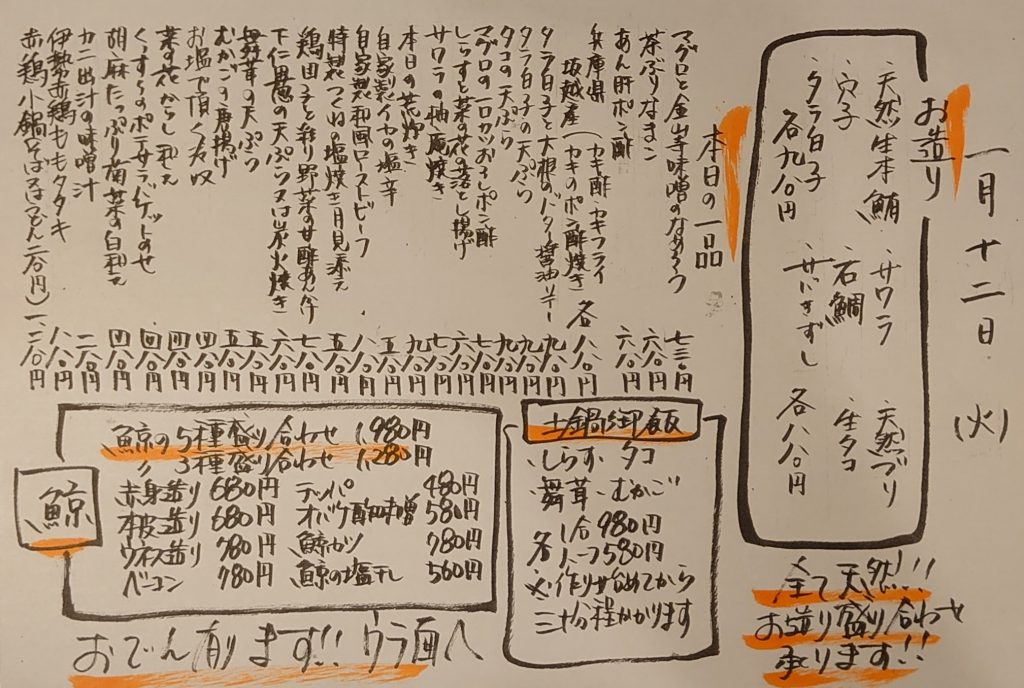 一月十二日(火)
お造り
天然生本鮪 サワラ 天然ブリ
穴子 石鯛 生タコ
タラ白子 サバきずし
各九八〇円 各八八〇円
全て天然!!
お造り盛り合わせ
承ります!!
本日の一品
マグロと金山寺味噌のなめろう 七三〇円
茶ぶりなまこ 六八〇円
あん肝ポン酢 六八〇円
兵庫県 坂越産(カキ酢・カキフライ
カキのポン酢焼き 各八八〇円
タラ白子と大根のバター醤油ソテー 九八〇円
タラ白子の天ぷら 九八〇円
タコの天ぷら 九八〇円
マグロの一口カツおろしポン酢 七八〇円
しらすと菜の花の落とし揚げ 六八〇円
サワラの柚庵焼き 七八〇円
本日の荒炊き 九八〇円
自家製イカの塩辛 五八〇円
自家製和風ローストビーフ 八八〇円
特製つくねの塩焼き月見添え 五八〇円
鶏団子と彩り野菜の甘酢あんかけ 七八〇円
下仁田葱の天ぷら又は炭火焼き 六八〇円
舞茸の天ぷら 五八〇円
むかごの唐揚げ 五八〇円
お塩で頂く冷奴 四八〇円
菜の花からし和え 四八〇円
くじらのポン酢サラダゲットのせ 四八〇円
胡麻たっぷり菊菜の白和え 四八〇円
カニ出汁の味噌汁 二八〇円
伊勢赤鶏ももタタキ 八八〇円
赤鶏小鍋 一、二八〇円
土鍋御飯
・しらす・タコ
・舞茸・むかご
各 1合 980円
ハーフ 580円
※作り始めてから
二十分程かかります
鯨
鯨の5種盛り合わせ 1,980円
〃 3種盛り合わせ 1,280円
赤身造り 680円 テッパ 480円
本皮造り 680円 オバケ酢味噌 580円
ウネス造り 780円 鯨カツ 780円
ベーコン 780円 鯨の塩干し 560円
おでん有ります!! ウラ面へ